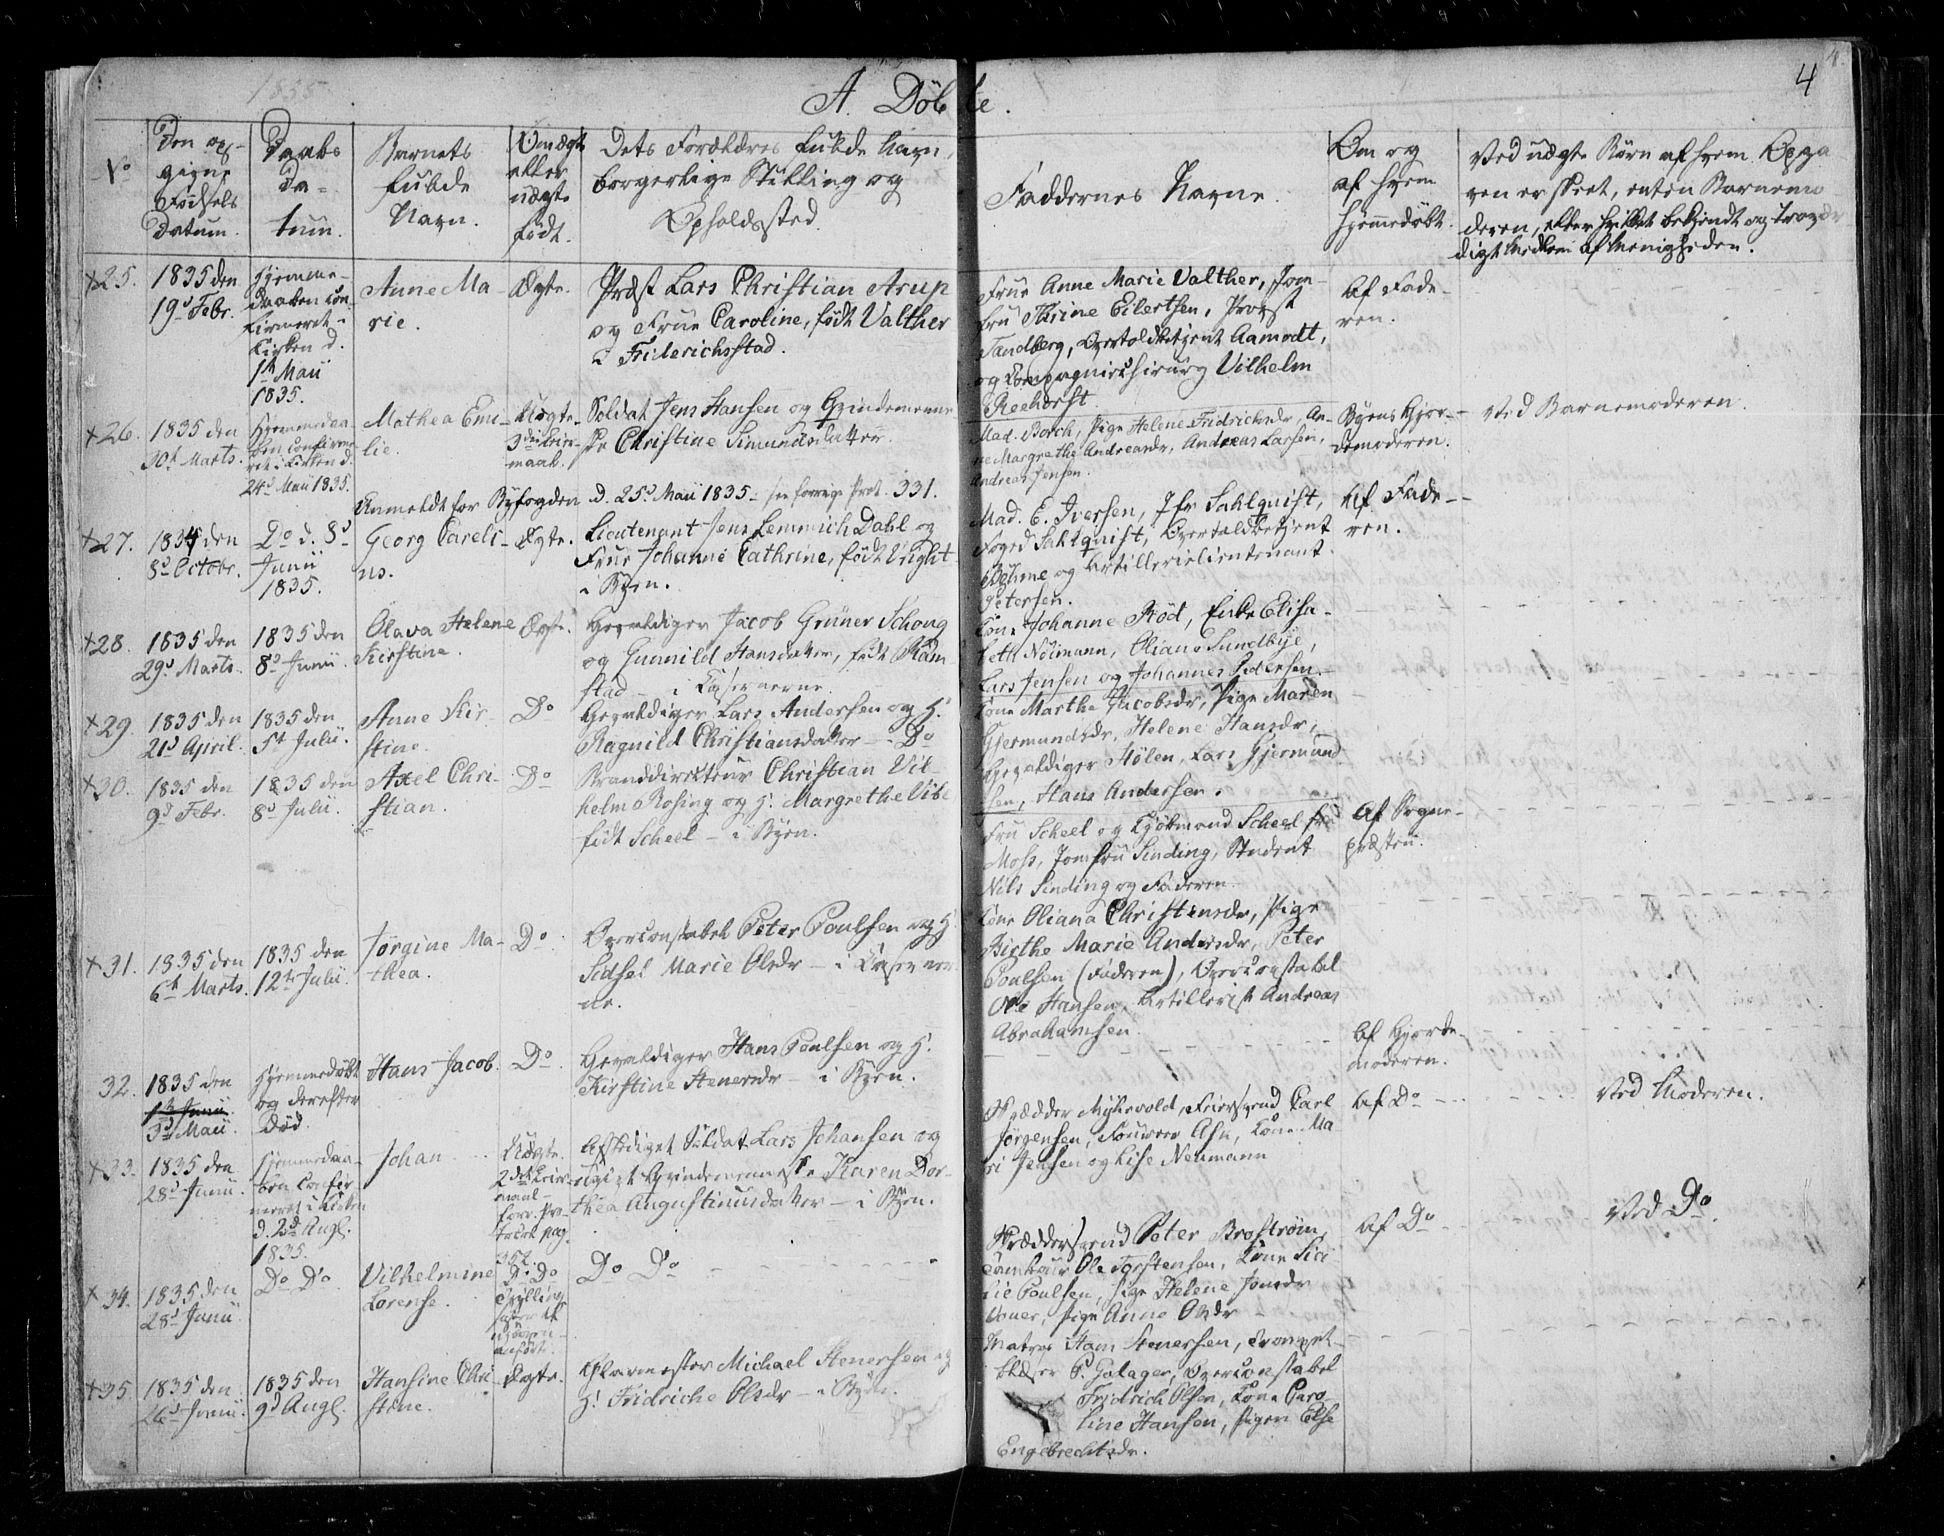 1835
A. Døbte.
4
No
Den op-
givne
Fødsels
Datum.
Daabs
Da-
tum.
Barnets
fulde
Navn.
Om ægte
eller
uægte
født.
Dets Forældres fulde Navn,
borgerlige Stilling og
Opholdssted.
Faddernes Navne.
Om og
af hvem
hjemmedøbt.
Ved uægte Børn af hvem Opga-
ven er skeet, enten Barnemo
deren, eller hvilket bekjendt og trovær
digt Medlem af Menigheden.
+25.
1835 den
19d Febr.
Hjemme-
daaben con-
firmeret i
Kirken d.
1st Maii
1835.
Anne Ma-
rie.
Ægte.
Præst Lars Christian Arup
og Frue Caroline, født Valther
i Friderichsstad.
Frue Anne Marie Valther, Jom-
fru Thrine Eilertsen, Provst
Tandberg, Overtoldbetjent Aamodt,
og Compagniechirurg Vilhelm
Reehorst.
Af Fade-
ren.
+26.
1835 den
30t Marts.
Hjemmedaa
ben confirme
ret i Kirken d.
24d Maii 1835.
Mathea Emi-
lie.
Uægte.
3die Leier-
maal.
Soldat Jens Hansen og Qvindemenne-
ske Christine Simundsdatter.
Mad. Borch, Pige Helene Fridrichsdr, An-
ne Margrethe Andreasdr, Andreas Larsen,
Andreas Jensen.
Byens Gjor-
demoderen.
Ved Barnemoderen.
Anmeldt for Byfogden d. 25d Maii 1835 - see forrige Prot. 331.
+27.
1834 den
8d Octobr.
Do d. 8d
Junii
1835.
Georg Careli-
us.
Ægte.
Lieutenant Jens Lemmich Dahl og
Frue Johanne Cathrine, født Vright
i Byen.
Mad. E. Iversen, Jfr Sahlquist,
Foged Sahlquist, Overtoldbetjent
Bøhme og Artillerielieutenant
Petersen.
Af Fade-
ren.
+28.
1835 den
29d Marts.
1835 den
8d Junii.
Olava Helene
Kirstine.
Ægte.
Gevaldiger Jacob Grüner Schoug
og Gunnild Hansdatter, født Ram
stad - i Casernerne.
Kone Johanne Röd, Enke Elisa-
beth Nöimann, Oliane Sundbye,
Lars Jensen og Johannes Pedersen.
+29
1835 den
21d April.
1835 den
5t Julii.
Anne Kir-
stine.
Do
Gevaldiger Lars Andersen og H.
Ragnild Christiansdatter - Do
Kone Marthe Jacobsdr, Pige Maren
Gjermundsdr, Helene Hansdr,
Gevaldiger Hølen, Lars Gjermund
sen, Hans Andersen.
+30.
1835 den
9d Febr.
1835 den
8d Julii.
Axel Chri-
stian.
Do
Branddirekteur Christian Vil-
helm Rosing og H. Margrethe Vibe
født Scheel - i Byen.
Fru Scheel og Kjöbmand Scheel fra
Moss, Jomfru Sinding, Student
Nils Sinding og Faderen.
Af Sogne-
præsten.
+31.
1835 den
6t Marts.
1835 den
12te Julii.
Jörgine Ma-
thea.
Do
Overconstabel Peter Poulsen og H.
Sidsel Marie Olsdr - i Caserner
ne.
Kone Oliana Christensdr, Pige
Birthe Marie Andersdr, Peter
Poulsen (Faderen), Overconstabel
Ole Hansen, Artillerist Andreas
Abrahamsen.
32.
1835 den
1te Junii
3d Maii.
Hjemmedøbt
og derefter
død.
Hans Jacob.
Do
Gevaldiger Hans Poulsen og H.
Kirstine Stenersdr - i Byen.
Af Gjorde-
moderen.
+33.
1835 den
28d Junii.
Hjemmedaa-
ben confir-
meret i Kirken
d. 23d Aug.
1835.
Johan
Uægte.
2det Leier-
maal
forr. Pro-
tocol pag.
352.
Afskediget Soldat Lars Johansen og
Pige Qvindemenneske Karen Dor-
thea Augustinusdatter - i Byen.
Skrædder Myhrvold, Feiersvend Carl
Jörgensen, Fourrer Ask, Kone Ma
ri Jensen og Lise Neumann
Af Do
Ved Moderen.
+34.
1835 den
28d Junii
Do Do
Vilhelmine
Lorense.
Do Do
Tvilling
Do Do
Skræddersvend Peter Broström,
Tambour Ole Torstensen, Kone Sici
lie Poulsen, Pige Helene Jonsdr
Pige Anne Olsdr
Af Do
Ved Do.
+35
1835 den
26d Junii.
1835 den
9d Aug.
Hansine Chri-
stine.
Ægte.
Michael Stenersen og
H. Fridriche Olsdr - i Byen.
Matros Hans Stenersen, Trompet-
blæser P. Galager, Overconstabel
Fridrich Olsen, Kone Caro-
line Hansen, Pigen Else
Engebrechtsdr.